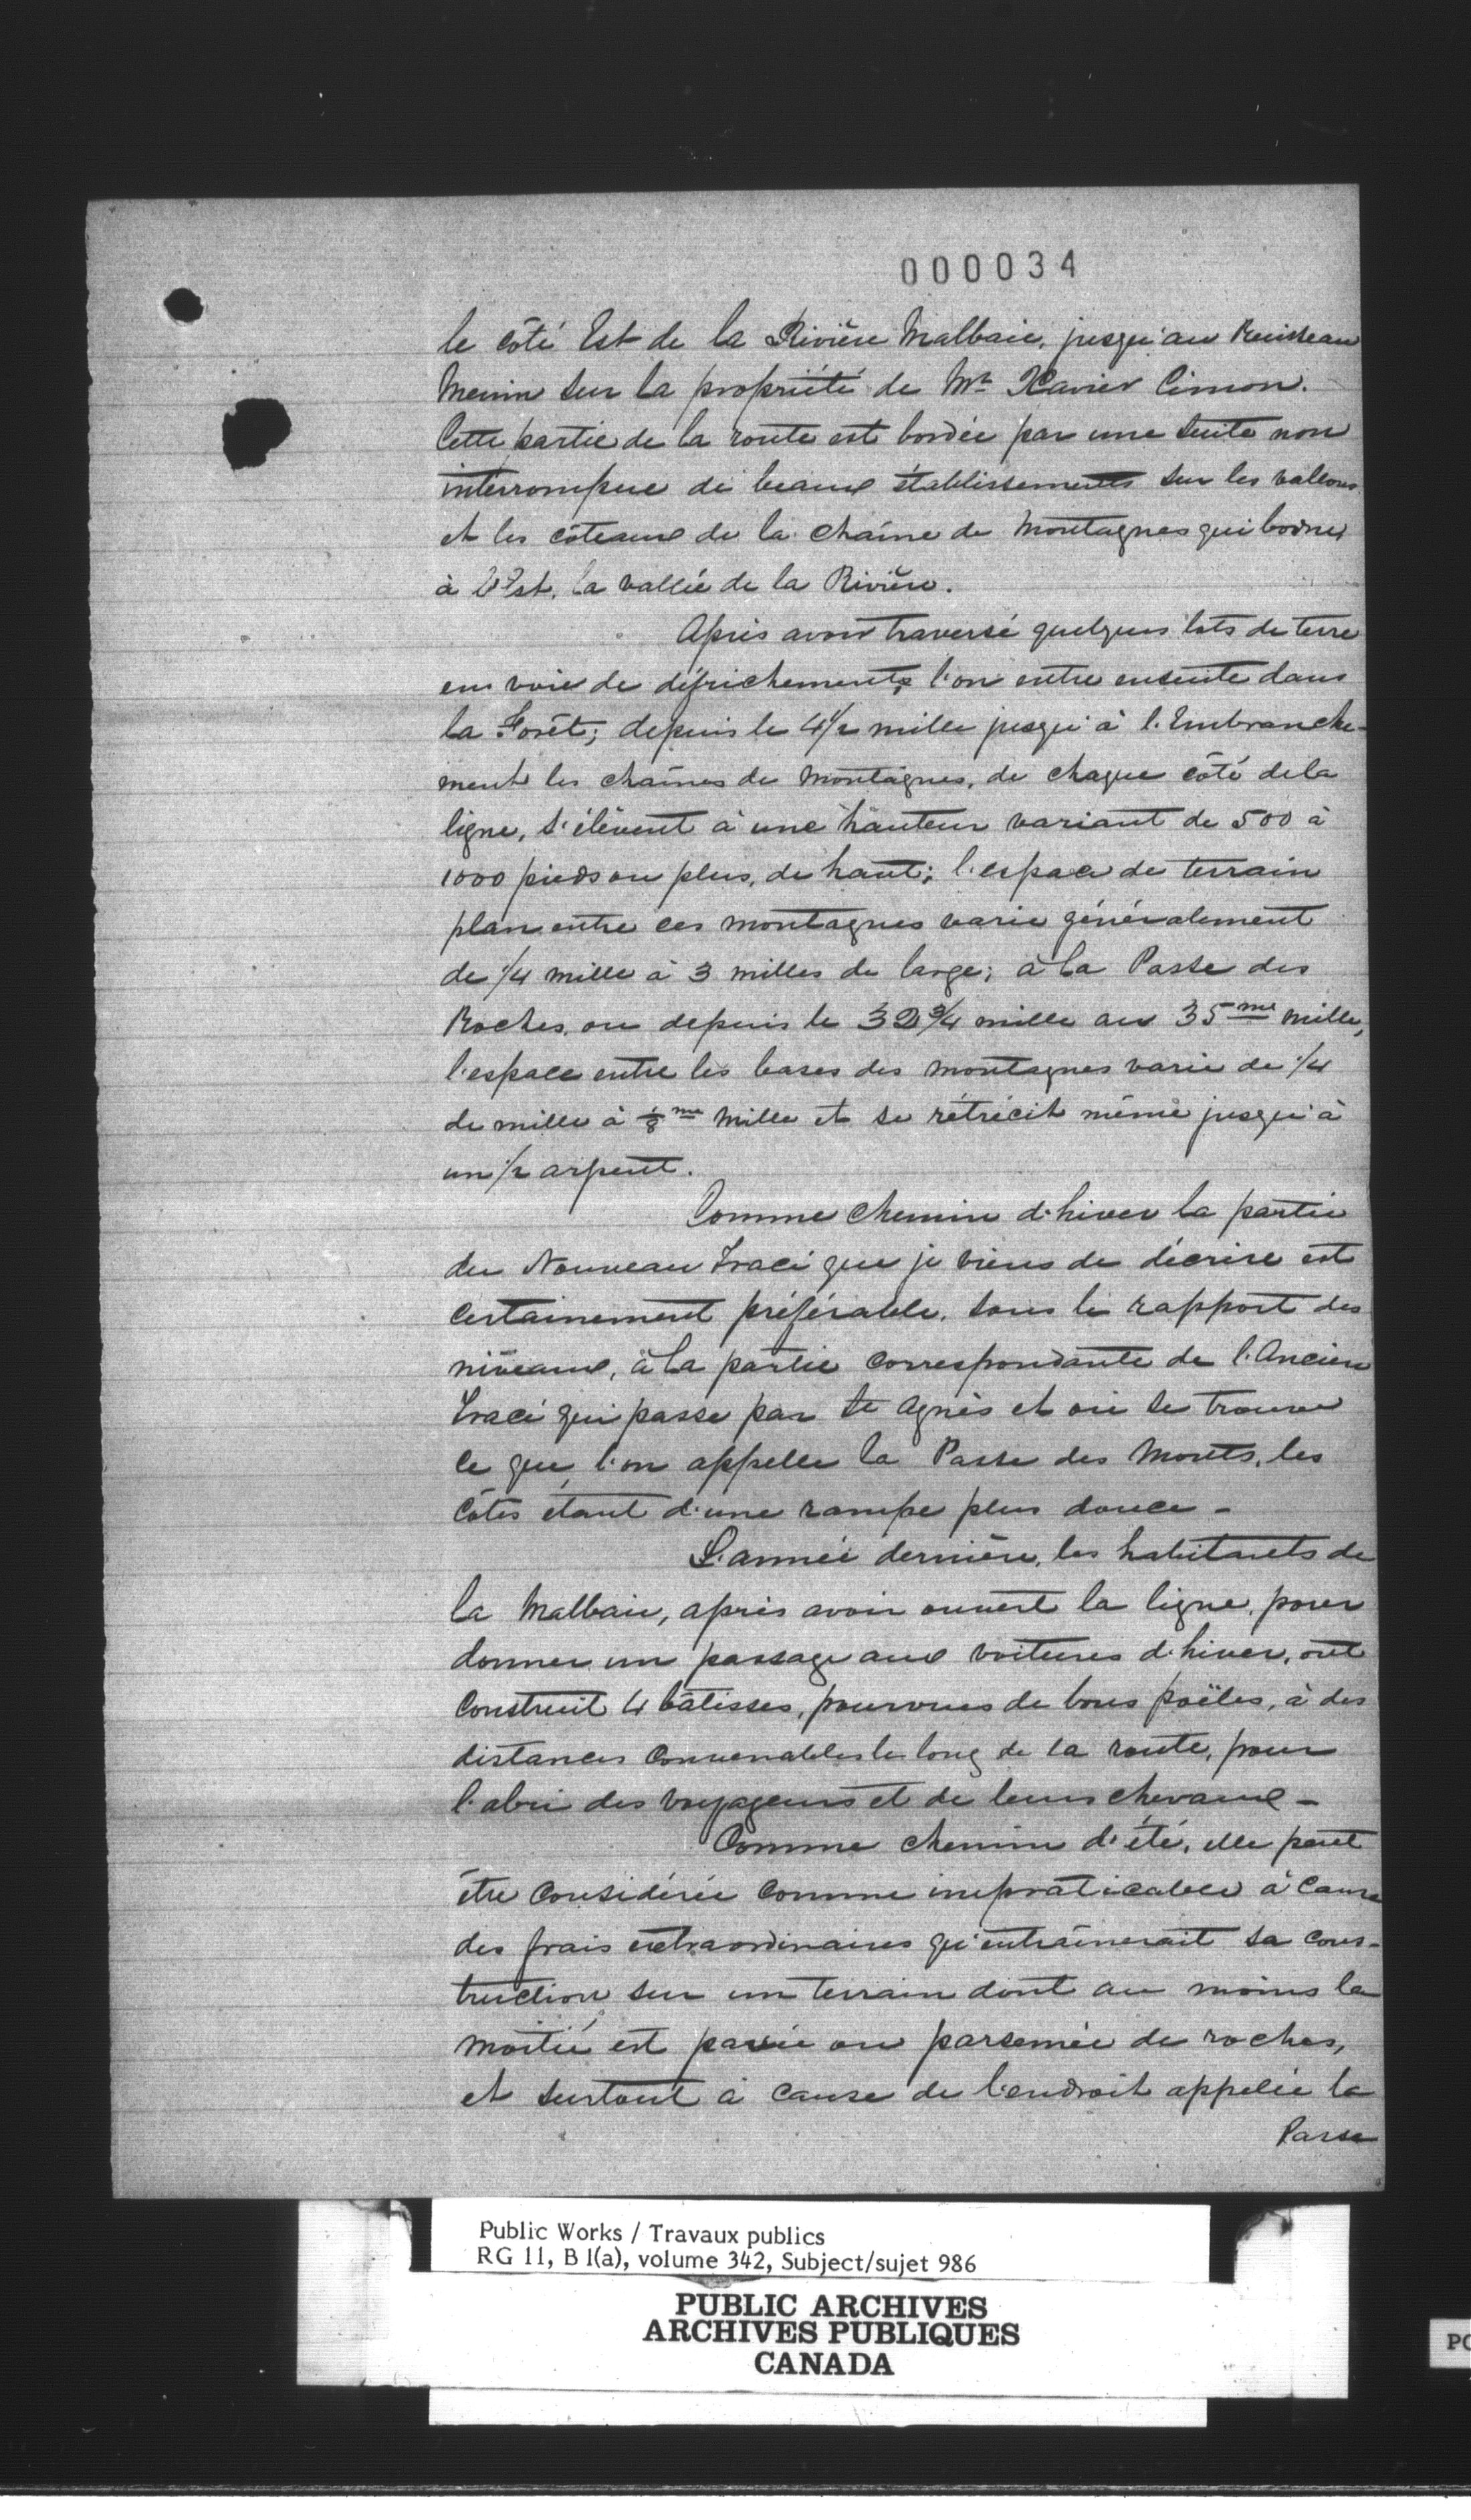 000034
le côté Est de la Rivière Malbaie, jusqu'au Ruisseau
Menin sur la propriété de Mr. Xavier Cimon.
Cette partie de la route est bordée par une suite non
interrompue de beaux établissements sur les vallons
et les côteaux de la chaîne de Montagnes qui borne
à l'Est, la vallée de la Rivière.
Après avoir traversé quelques lots de terre
en voie de défrichement, l'on entre ensuite dans
la Forêt; depuis le 4½ mille jusqu'à l'Embranche-
ment les chaînes de Montagnes, de chaque côté de la
ligne, s'élèvent à une hauteur variant de 500 à
1000 pieds ou plus, de haut; l'espace de terrain
plan entre ces montagnes varie généralement
de 1/4 mille à 3 milles de large; à la Passe des
Roches, ou depuis le 32¾ mille au 35me mille,
l'espace entre les bases des montagnes varie de 1/4
de mille à 1/8me mille et se rétrécit même jusqu'à
un ½ arpent.
Comme chemin d'hiver la partie
du Nouveau Tracé que je viens de décrire est
certainement préférable, sous le rapport des
niveaux, à la partie correspondante de l'Ancien
Tracé qui passe par Ste Agnès et où se trouve
ce que l'on appelle la Passe des Monts, les
côtes étant d'une rampe plus douce -
L'année dernière, les habitants de
la Malbaie, après avoir ouvert la ligne, pour
donner un passage aux voitures d'hiver, ont
construit 4 bâtisses, pourvues de bons poëles, à des
distances convenables le long de la route, pour
l'abri des voyageurs et de leurs chevaux -
Comme chemin d'été, elle peut
être considérée comme impraticable à cause
des frais extraordinaires qu'entraînerait sa cons-
truction sur un terrain dont au moins la
moitié est pavée ou parsemée de roches,
et surtout à cause de l'endroit appelée la
Passe
Public Works / Travaux publics
RG 11, B 1(a), volume 342, Subject/sujet 986
PUBLIC ARCHIVES
ARCHIVES PUBLIQUES
CANADA
PO